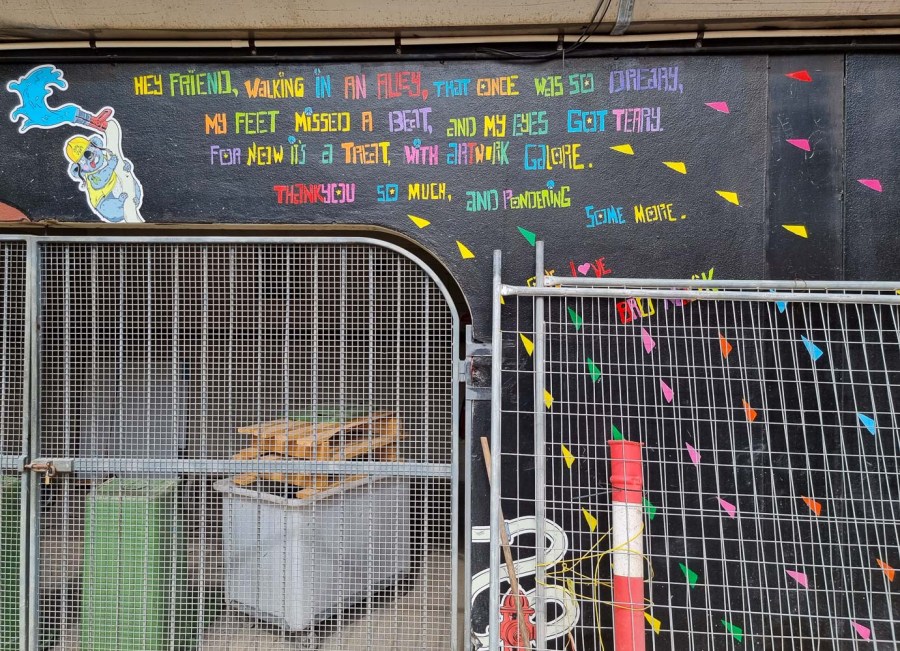 HEY FRIEND, WALKING IN AN ALLEY, THAT ONCE WAS SO DREARY,
MY FEET MISSED A BEAT, AND MY EYES GOT TEARY.
FOR NOW IT'S A TREAT, WITH ARTWORK GALORE.
THANKYOU SO MUCH, AND PONDERING
SOME MORE.
LOVE